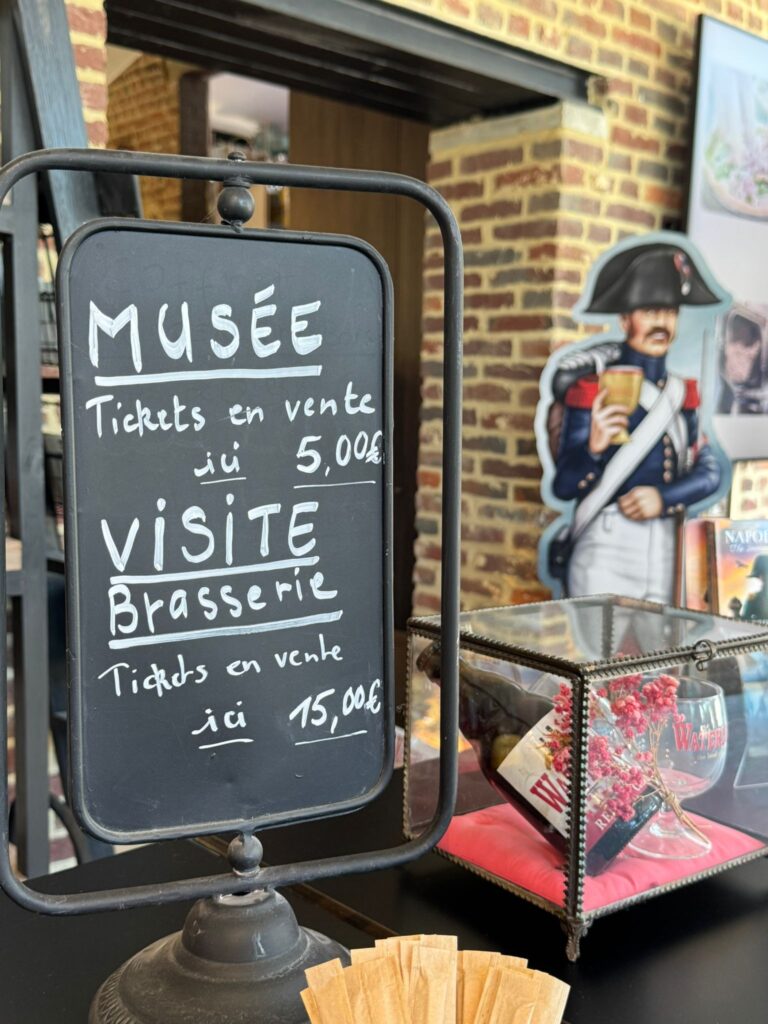 MUSÉE
Tickets en vente
ici 5,00€
VISITE
Brasserie
Tickets en vente
ici 15,00€
NAPOL
The
WATER
W
RE